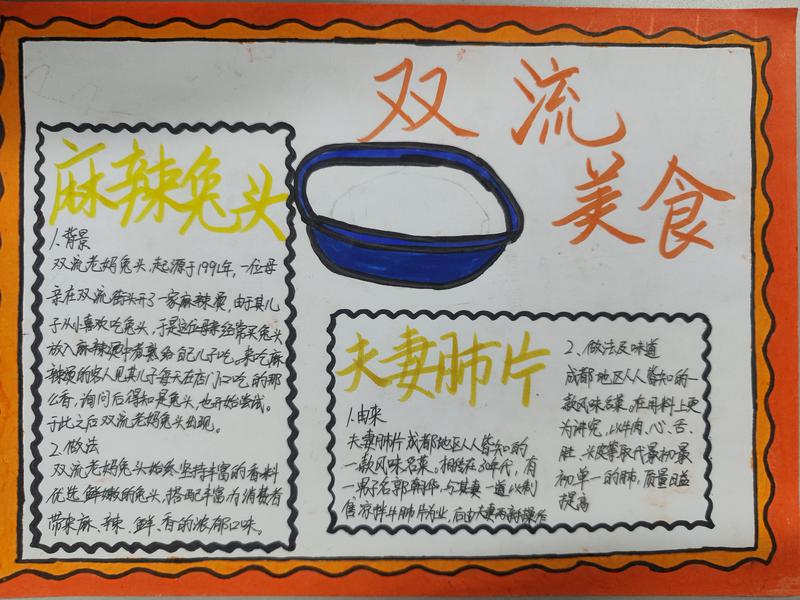 双流
美食
麻辣兔头
1.背景
双流老妈兔头,起源于1991年,一位母
亲在双流街头开了一家麻辣烫,由于其儿
子从小喜欢吃兔头,于是这位母亲经常买兔头
放入麻辣烫中煮熟给自己儿子吃。来吃麻
辣烫的客人见其儿子每天在店门口吃的那
么香,询问后得知是兔头,也开始尝试。
于此之后双流老妈兔头出现。
2.做法
双流老妈兔头始终坚持丰富的香料
优选鲜嫩的兔头,搭配丰富为消费者
带来麻、辣、鲜、香的浓郁口味。
夫妻肺片
1.由来
夫妻肺片成都地区人人皆知的
一款风味名菜,相传在30年代,有
一男子名郭朝华,与其妻一道以制
售凉拌牛肺片为业,后由夫妻两
2、做法及味道
成都地区人人皆知的一
款风味名菜。在用料上更
为讲究,以牛肉、心、舌、
肚、头皮等取代最初最
初单一的肺,质量日益
提高